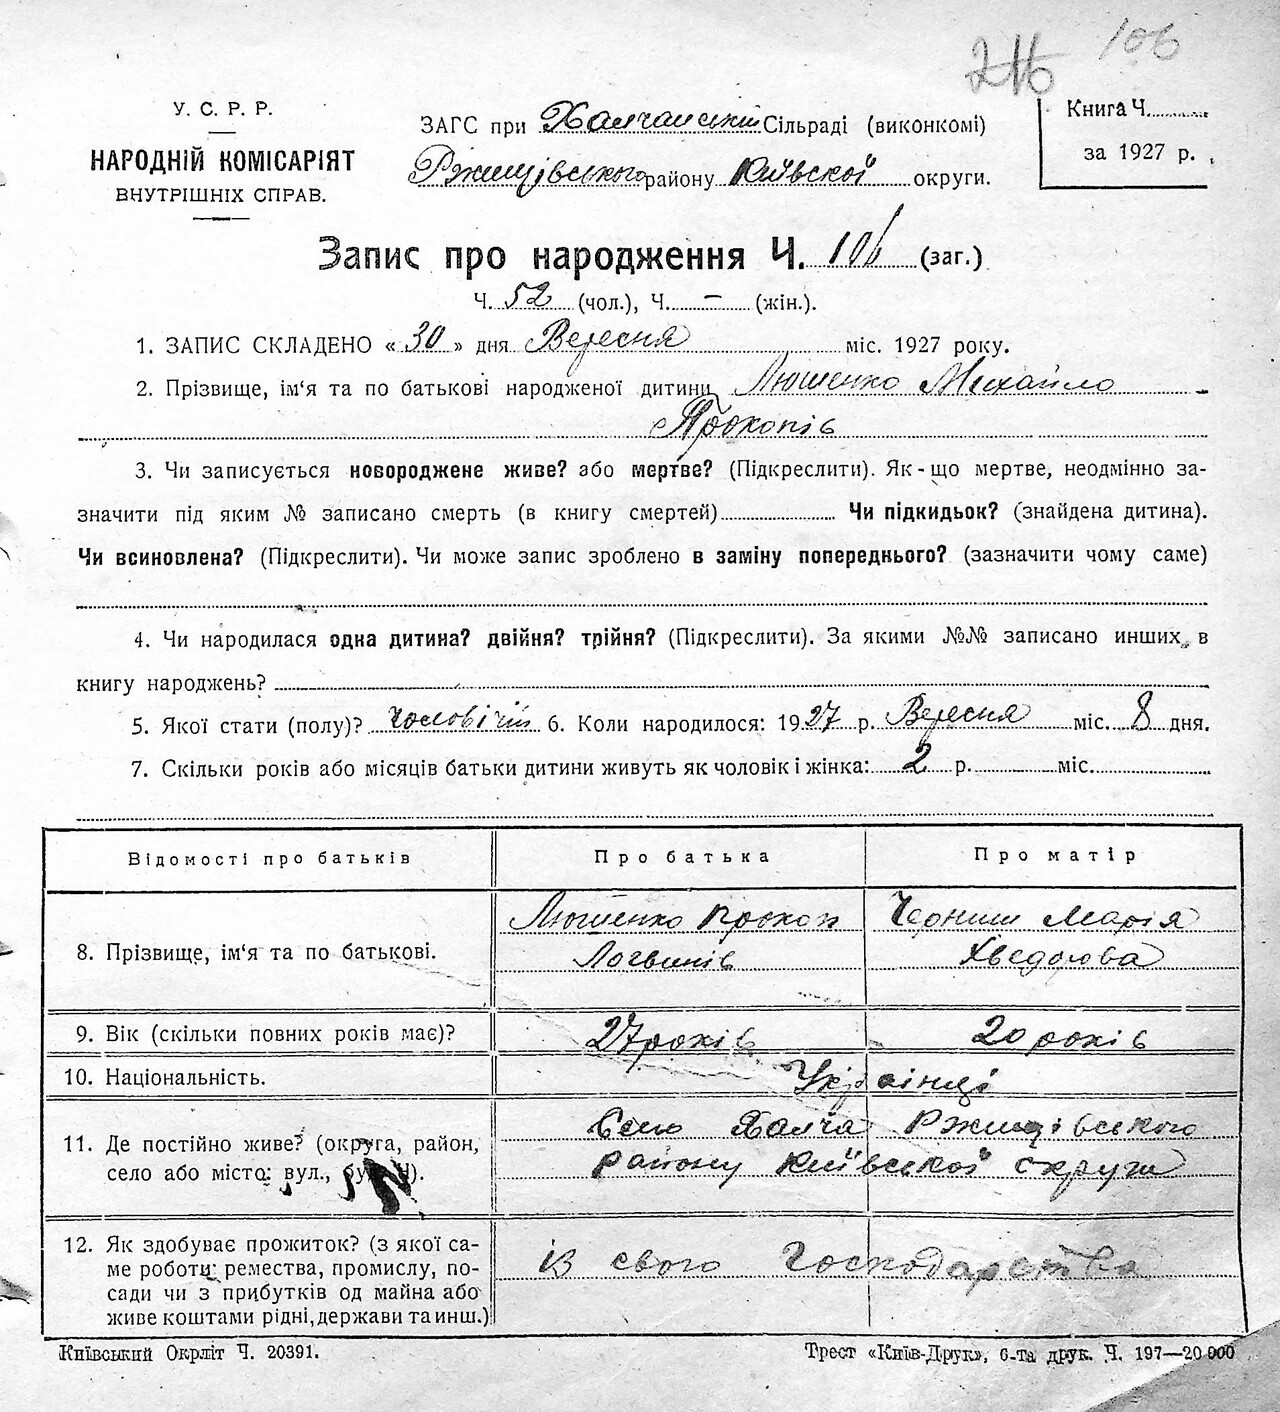 216 106
У. С. Р. Р.
НАРОДНІЙ КОМІСАРІЯТ
ВНУТРІШНІХ СПРАВ.
ЗАГС при Халчанській Сільраді (виконкомі)
Ржищівського району Київскої округи.
Книга Ч.
за 1927 р.
Запис про народження Ч. 106 (заг.)
Ч. 52 (чол.), Ч. – (жін.).
1. ЗАПИС СКЛАДЕНО « 30 » дня Вересня міс. 1927 року.
2. Прізвище, ім'я та по батькові народженої дитини Люшенко Михайло
Прокопів
3. Чи записується новороджене живе? або мертве? (Підкреслити). Як-що мертве, неодмінно за-
значити під яким № записано смерть (в книгу смертей) Чи підкидьок? (знайдена дитина).
Чи всиновлена? (Підкреслити). Чи може запис зроблено в заміну попереднього? (зазначити чому саме)
4. Чи народилася одна дитина? двійня? трійня? (Підкреслити). За якими №№ записано инших, в
книгу народжень?
5. Якої стати (полу)? чоловічій 6. Коли народилося: 1927 р. Вересня міс. 8 дня.
7. Скільки років або місяців батьки дитини живуть як чоловік і жінка: 2 р. міс.
Відомості про батьків Про батька Про матір
8. Прізвище, ім'я та по батькові. Люшенко Прокоп Логвинів Черниш Марія Хведорова
9. Вік (скільки повних років має)? 27 років 20 років
10. Національність. Українці
11. Де постійно живе? (округа, район,
село або місто: вул., Ч).
Село Халча Ржищівського
району Київської округи
12. Як здобуває прожиток? (з якої са-
ме роботи: ремества, промислу, по-
сади чи з прибутків од майна або
живе коштами рідні, держави та инш.)
із свого Господарства
Київський Окрліт Ч. 20391.
Трест «Київ-Друк», 6-та друк. Ч. 197—20 000